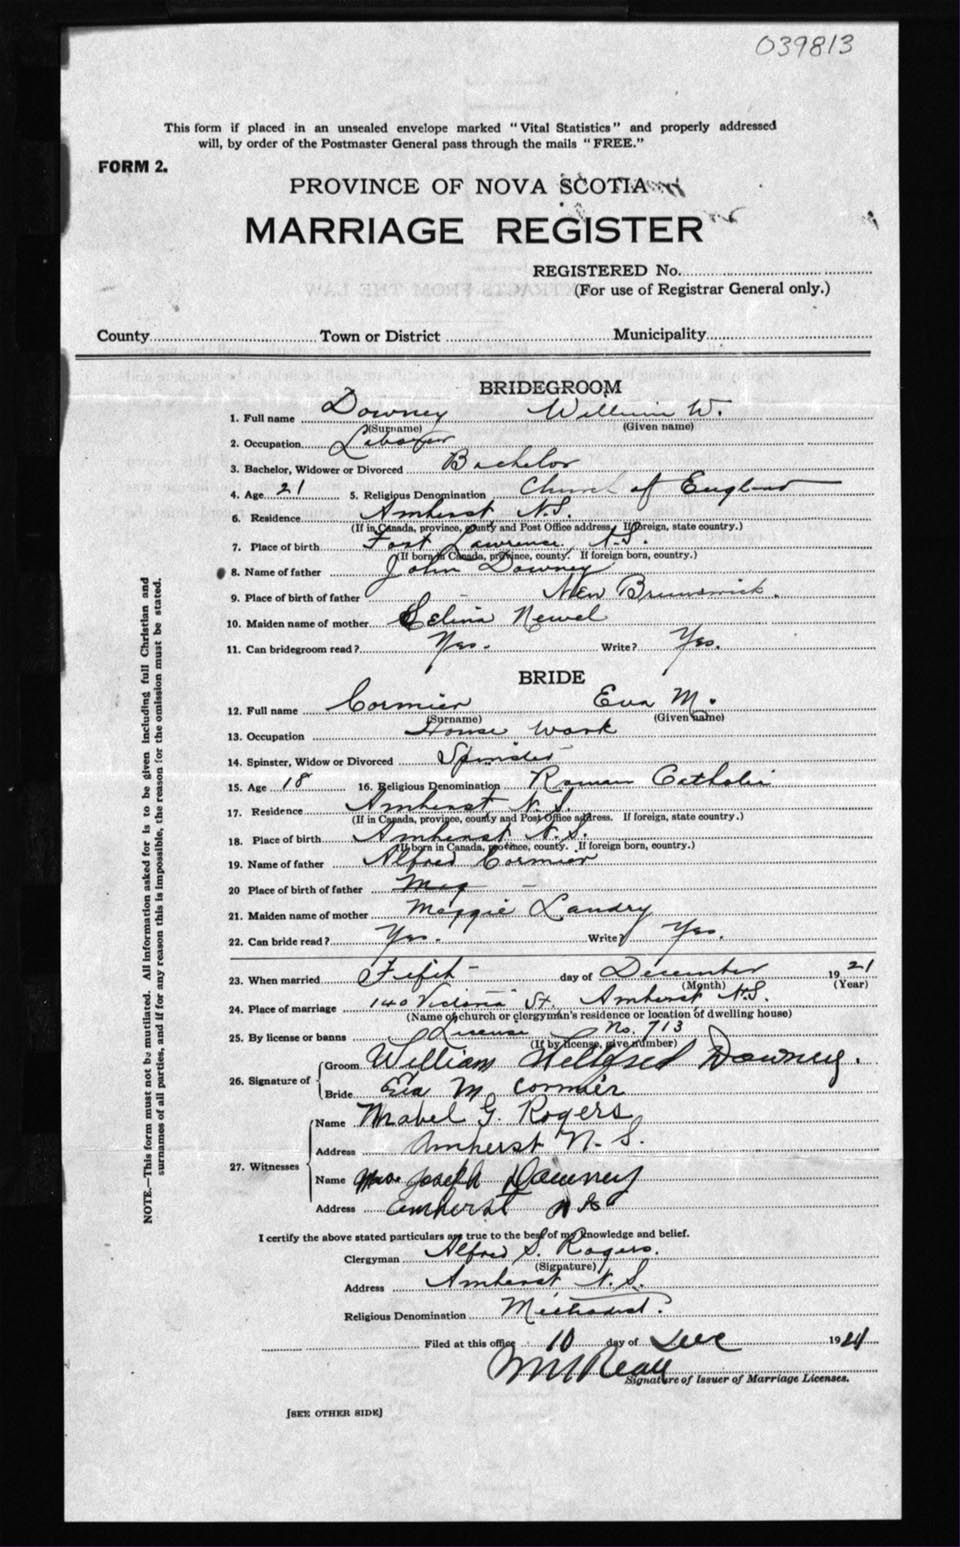 039813
This form if placed in an unsealed envelope marked "Vital Statistics" and properly addressed
will, by order of the Postmaster General pass through the mails "FREE."
FORM 2.
PROVINCE OF NOVA SCOTIA
MARRIAGE REGISTER
REGISTERED No.
(For use of Registrar General only.)
County Town or District Municipality
BRIDEGROOM
1. Full name Downey William W.
(Surname) (Given name)
2. Occupation Laborer
3. Bachelor, Widower or Divorced Bachelor
4. Age 21 5. Religious Denomination Church of England
6. Residence Amherst N.S.
(If in Canada, province, county and Post Office address. If foreign, state country.)
7. Place of birth Fort Lawrence, N.S.
(If born in Canada, province, county. If foreign born, country.)
8. Name of father John Downey
9. Place of birth of father New Brunswick.
10. Maiden name of mother Selina Newel
11. Can bridegroom read? Yes. Write? Yes.
BRIDE
12. Full name Cormier Eva M.
(Surname) (Given name)
13. Occupation House work
14. Spinster, Widow or Divorced Spinster
15. Age 18 16. Religious Denomination Roman Catholic
17. Residence Amherst N.S.
(If in Canada, province, county and Post Office address. If foreign, state country.)
18. Place of birth Amherst N.S.
(If born in Canada, province, county. If foreign born, country.)
19. Name of father Alfred Cormier
20 Place of birth of father
21. Maiden name of mother Maggie Landry
22. Can bride read? Yes. Write? Yes.
23. When married Fifth day of December 1921
(Month) (Year)
24. Place of marriage 140 Victoria St. Amherst N.S.
(Name of church or clergyman's residence or location of dwelling house)
25. By license or banns License No. 713
(If by license, give number)
26. Signature of
Groom William Downey.
Bride Eva M Cormier
27. Witnesses
Name Mabel G. Rogers
Address Amherst N.S.
Name Mrs. Joseph Downey
Address Amherst N S
I certify the above stated particulars are true to the best of my knowledge and belief.
Clergyman Alfred S. Rogers.
(Signature)
Address Amherst N.S.
Religious Denomination Methodist.
Filed at this office 10 day of Dec 1921
Signature of Issuer of Marriage Licenses.
[SEE OTHER SIDE]
NOTE.—This form must not be mutilated. All information asked for is to be given including full Christian and
surnames of all parties, and if for any reason this is impossible, the reason for the omission must be stated.